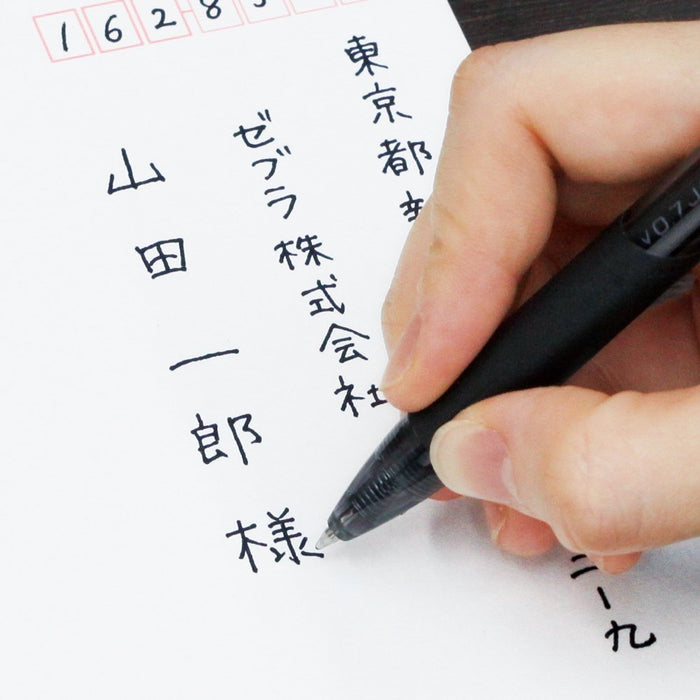 1628
東京都
ゼブラ株式会社
山田一郎様
二ー九